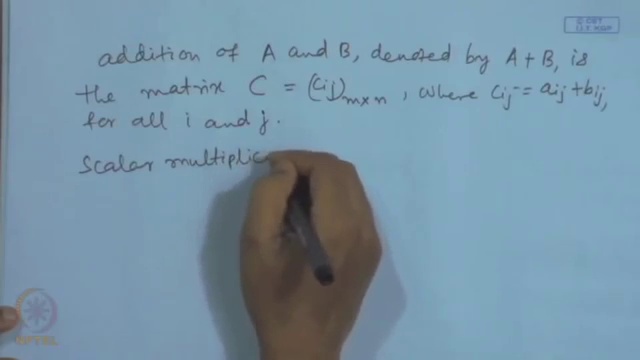 addition of A and B, denoted by A + B, is
the matrix C = (cij)m×n, where cij = aij + bij,
for all i and j.
Scalar multiplic
© CET
I.I.T. KGP
NPTEL